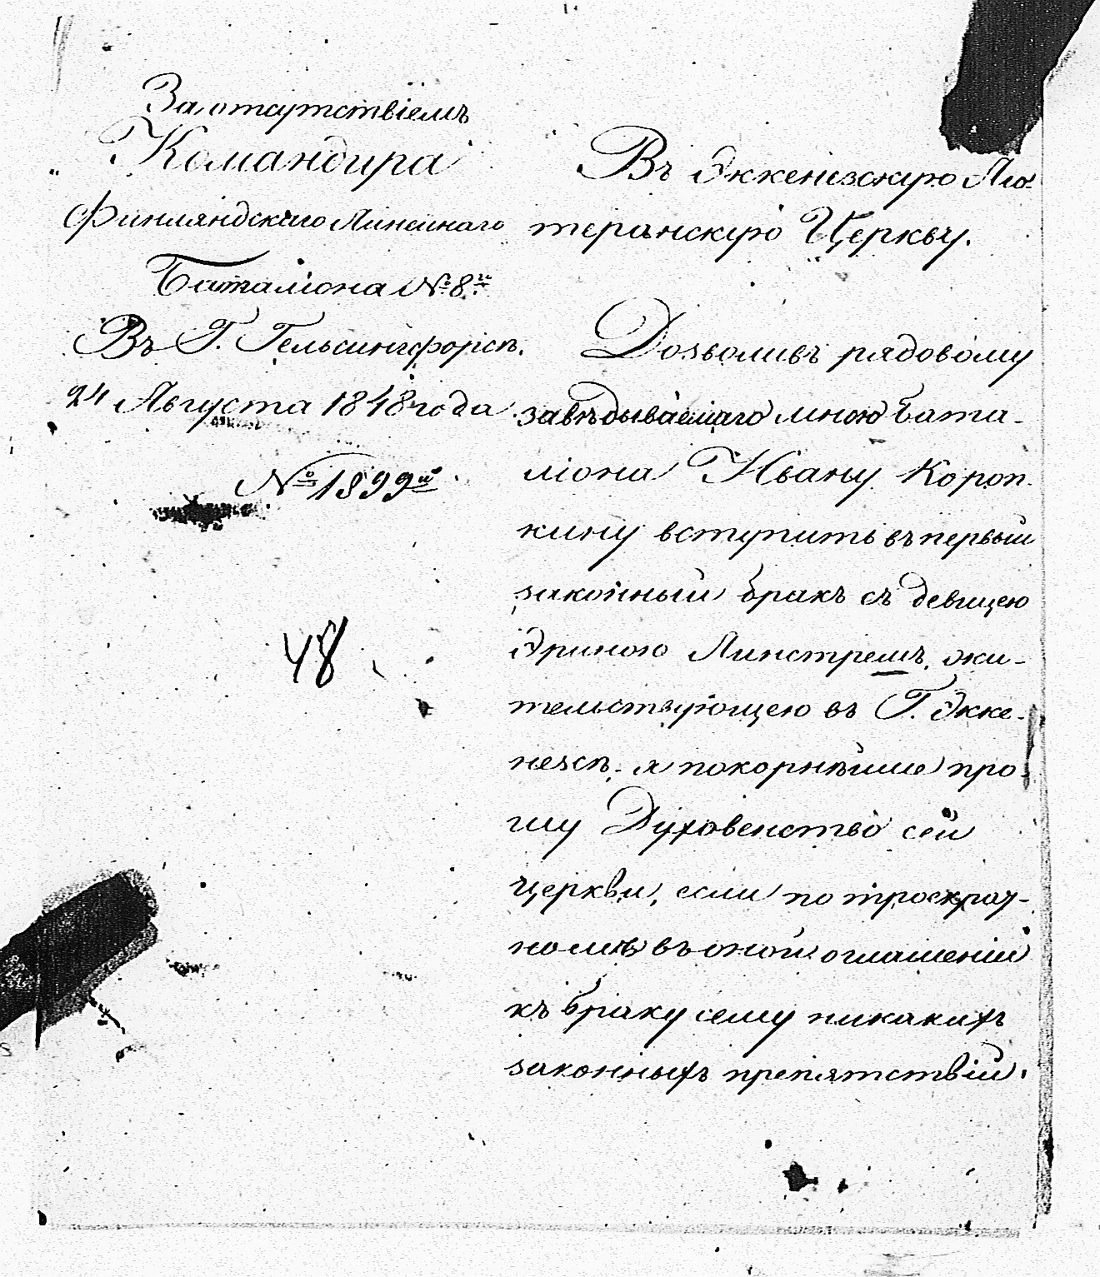 За отсутствіемъ
Командира
Финляндскаго Линейнаго
Баталіона № 8го
Въ Г. Гельсингфорсѣ.
24 Августа 1848 года.
№ 1899й
48
Въ Эккенезскую Лю-
теранскую Церковь.
Дозволивъ рядовому
завѣдываемаго мною бата-
ліона Ивану Короп-
кину вступить въ первый
законный бракъ съ девицею
Эриною Линстремъ, жи-
тельствующею въ Г. Экке-
незѣ, я покорнѣйше про-
шу Духовенство сей
Церкви, если по троекрат-
номъ въ оной оглашеніи
къ браку сему никакихъ
законныхъ препятствій